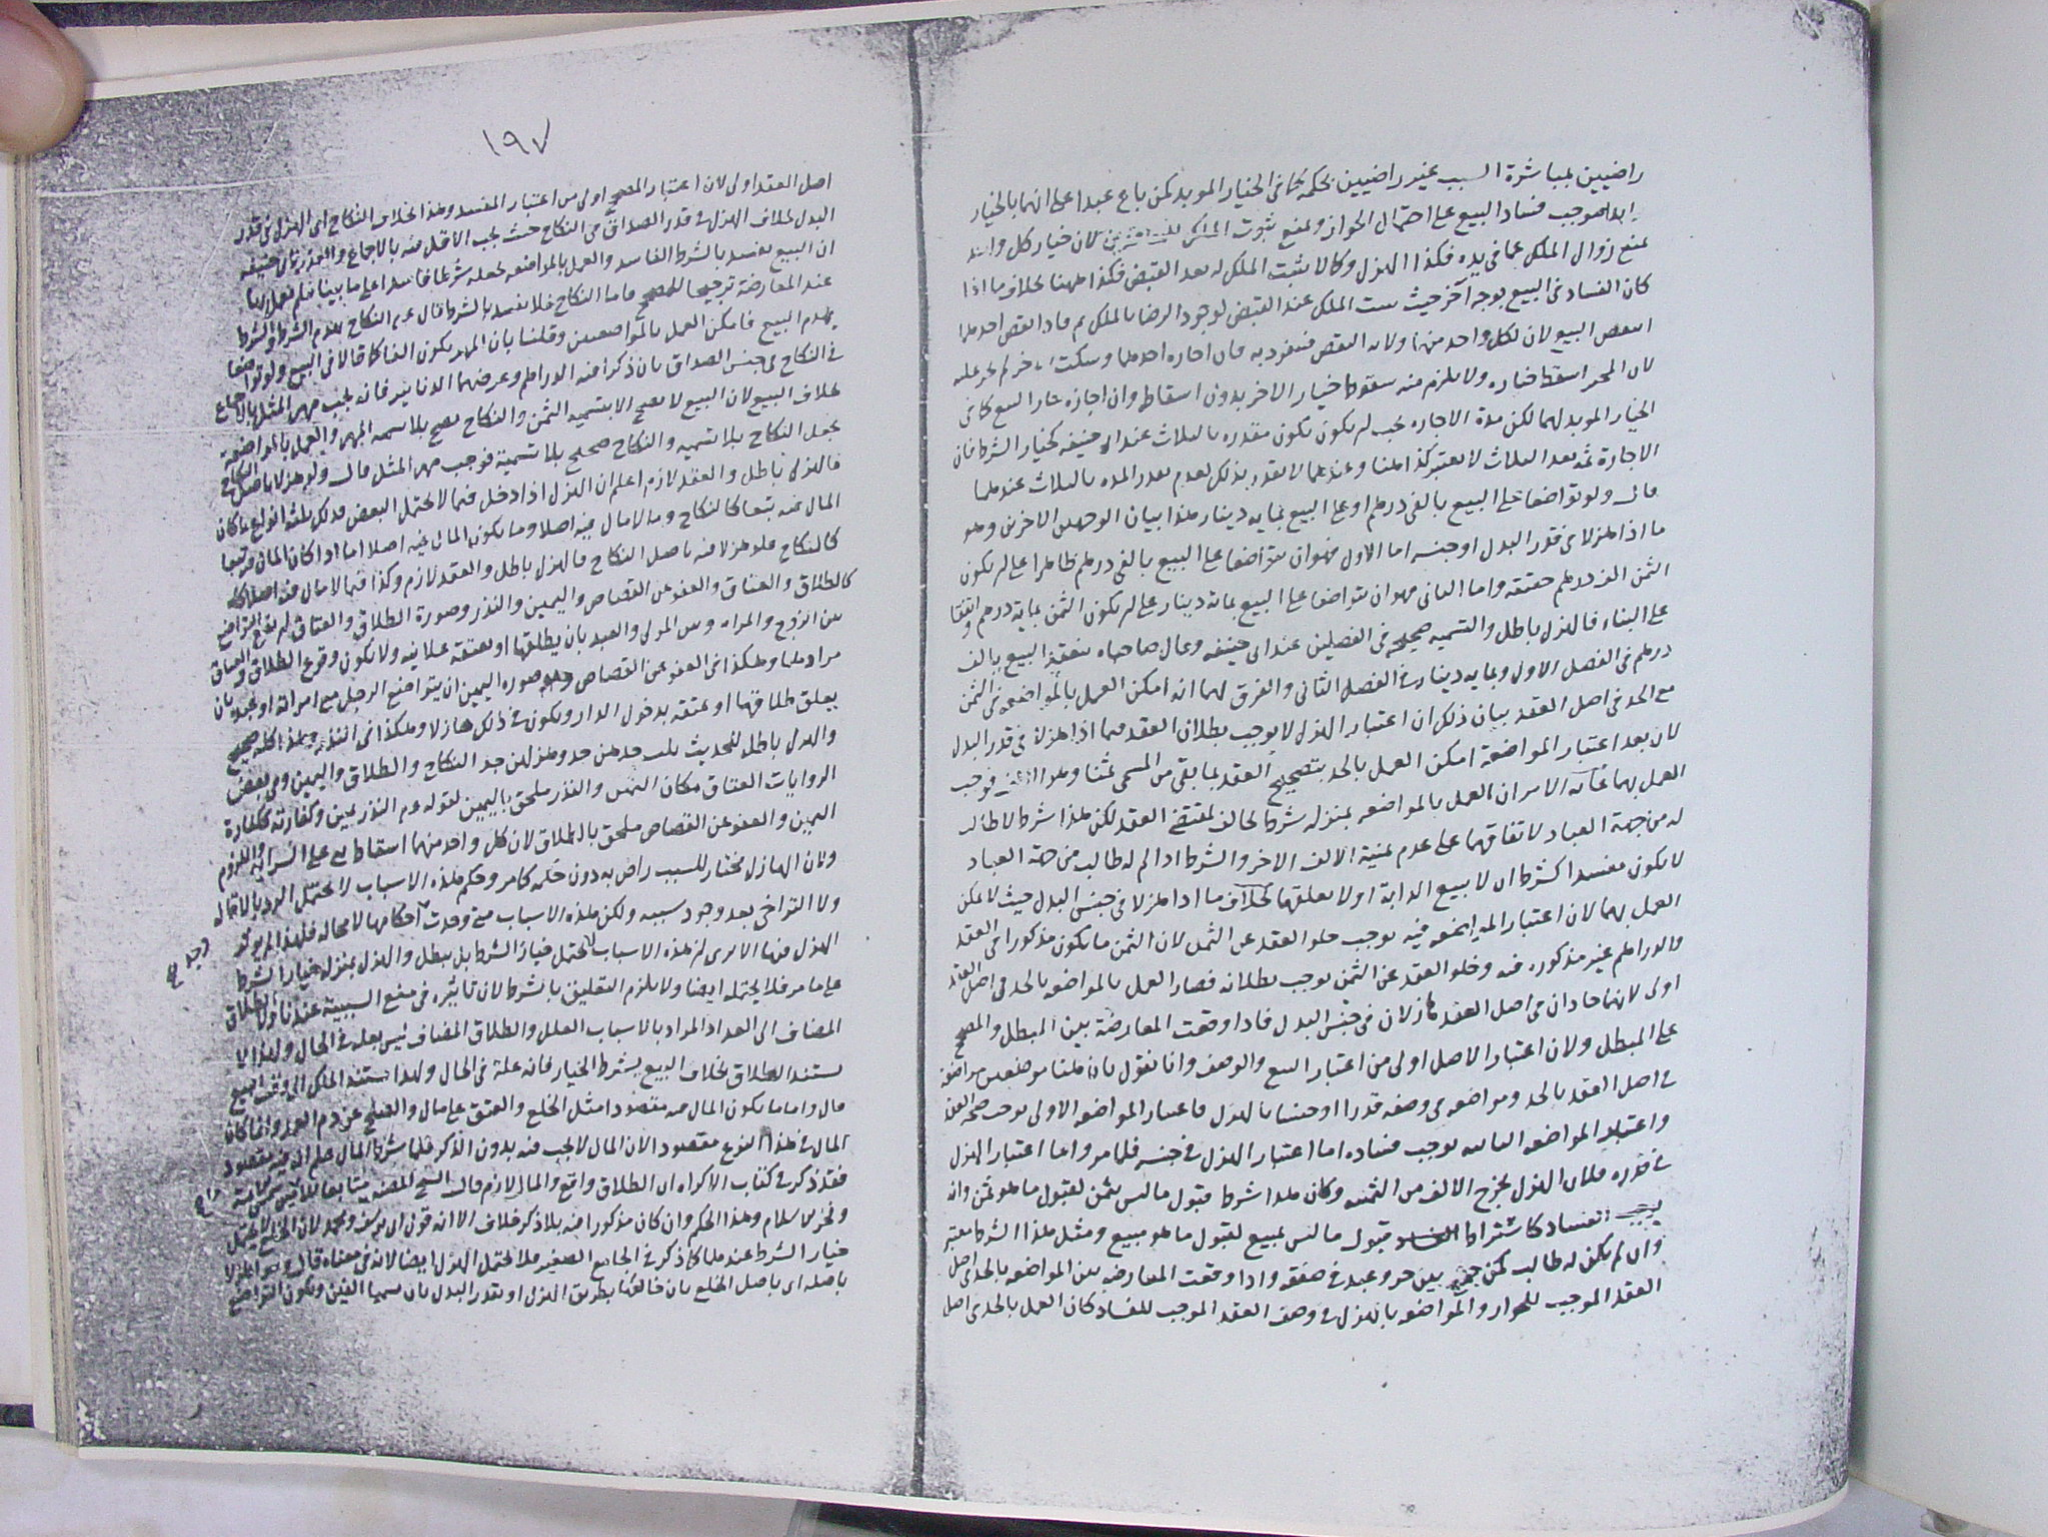 راضيين بمباشرة السبب غير راضيين بحكمه كما في الخيار المويد كمن باع عبدا على انهما بالخيار
ابدا فموجب فساد البيع على احتمال الجواز ومنع ثبوت الملك للمشتريين لان خيار كل واحد
يمنع زوال الملك عما في يده فكذا الهزل وكما لا يثبت الملك له بعد القبض فكذا ههنا بخلاف ما اذا
كان الفساد في البيع بوجه آخر حيث يثبت الملك عند القبض لوجود الرضا بالملك ثم فاذا نقض احدهما
انتقض البيع لان لكل واحد منهما ولاية النقض فينفرد به فان اجازه احدهما وسكت الآخر لم يجز عليه
لان المجيز اسقط خياره ولا يلزم منه سقوط خيار الاخر بدون اسقاطه وان اجازه جاز البيع كما في
الخيار المويد لهما لكن مدة الاجازة يجب ان يكون مقدره بالثلاث عند ابي حنيفه كخيار الشرط فان
الاجازة ثمه بعد الثلاث لا يعتبر كذا هنا وعندهما لا يقدر بذلك لعدم تقدر المده بالثلاث عندهما
قال ولو تواضعا على البيع بالفي درهم او على البيع بمايه دينار هذا بيان الوجهين الاخرين وهو
ما اذا هزلا في قدر البدل او جنسه اما الاول فهو ان يتواضعا على البيع بالفي درهم ظاهرا على ان يكون
الثمن الف درهم حقيقه واما الثاني فهو ان يتواضعا على البيع بمائة دينار على ان يكون الثمن بماية درهم واتفقا
على البناء فالهزل باطل والتسميه صحيحه في الفصلين عند ابي حنيفه وقال صاحباه ينعقد البيع بالف
درهم في الفصل الاول وبمايه دينار في الفصل الثاني والفرق لهما انه امكن العمل بالمواضعه في الثمن
مع الجد في اصل العقد بيان ذلك ان اعتبار الهزل لا يوجب بطلان العقد فيما اذا هزلا في قدر البدل
لان بعد اعتبار المواضعة امكن العمل بالجد بتصحيح العقد بما بقي من المسمى ثمنا وهو الالف فوجب
العمل بهما غاية الامر ان العمل بالمواضعه بمنزله شرط يخالف لمقتضى العقد لكن هذا شرط لا طالب
له من جهة العباد لاتفاقهما على عدم ثمنية الالف الاخر والشرط اذا لم له طالب من جهة العباد
لا يكون مفسدا كشرط ان لا يبيع الدابة او لا يعلقها بخلاف ما اذا هزلا في جنس البدل حيث لا يمكن
العمل بهما لان اعتبار المواضعه فيه يوجب خلو العقد عن الثمن لان الثمن ما يكون مذكورا في العقد
والدراهم غير مذكوره فيه وخلو العقد عن الثمن يوجب بطلانه فصار العمل بالمواضعه بالجد في اصل العقد
اولى لانهما جادان في اصل العقد هازلان في جنس البدل فاذا وقعت المعارضة بين المبطل والمصحح
على المبطل ولان اعتبار الاصل اولى من اعتبار التبع والوصف وانا نقول بان هنا مواضعتين مواضعة
في اصل العقد بالجد ومواضعه في وصفه قدرا او جنسا بالهزل فاعتبار المواضعه الاولى يوجب صحة العقد
واعتبار المواضعه الثانيه يوجب فساده اما اعتبار الهزل في جنسه فلما مر واما اعتبار الهزل
في قدره فلان الهزل يخرج الالف من الثمنيه وكان هذا شرط قبول ما ليس بثمن لقبول ما هو ثمن وانه
يوجب الفساد كاشتراط قبول ما ليس بمبيع لقبول ما هو مبيع ومثل هذا الشرط معتبر
وان لم يكن له طالب كمن جمع بين حر وعبد في صفقه واذا وقعت المعارضه بين المواضعه بالجد في اصل
العقد الموجب للجواز والمواضعه بالهزل في وصف العقد الموجب للفساد كان العمل بالجد في اصل
١٩٧
اصل العقد اولى لان اعتبار المصحح اولى من اعتبار المفسد وهذا بخلاف النكاح اي الهزل في قدر
البدل بخلاف الهزل في قدر الصداق في النكاح حيث يجب الاقل منه بالاجماع والعذر لابي حنيفه
ان البيع يفسد بالشرط الفاسد والعمل بالمواضعه يجعله شرطا فاسدا على ما بينا فلم يعمل بها
عند المعارضة ترجيحا للمصحح واما النكاح فلا يفسد بالشرط قال عم النكاح يهدم الشرط والشرط
يهدم البيع فامكن العمل بالمواضعتين وقلنا بان المهر يكون الفا كما قالا في البيع ولو تواضعا
في النكاح في جنس الصداق بان ذكرا فيه الدراهم وغرضهما الدنانير فانه يجب مهر المثل بالاجماع
بخلاف البيع لان البيع لا يصح الا بتسمية الثمن والنكاح يصح بلا تسميه المهر والعمل بالمواضعه
يجعل النكاح بلا تسميه والنكاح صحيح بلا تسمية فوجب مهر المثل قال ولو هزلا باصل النكاح
فالهزل باطل والعقد لازم اعلم ان الهزل اذا دخل فيما لا يحتمل النقض فذلك ثلثه انواع ما كان
المال فيه تبعا كالنكاح وما لا مال فيه اصلا وما يكون المال فيه اصلا اما اذا كان المال فيه تبعا
كالنكاح فلو هزلا فيه باصل النكاح فالهزل باطل والعقد لازم وكذا فيما لا مال فيه اصلا
كالطلاق والعتاق والعفو عن القصاص واليمين والنذر وصورة الطلاق والعتاق ان يقع التواضع
بين الزوج والمراه وبين المولى والعبد بان يطلقها او يعتقه علانيه ولا يكون وقوع الطلاق والعتاق
مرادهما وهكذا في العفو عن القصاص وصورة اليمين ان يتواضع الرجل مع امراته او عبده بان
يعلق طلاقها او عتقه بدخول الدار ويكون في ذلك هازلا وهكذا في النذر وهذا كله صحيح
والهزل باطل للحديث ثلث جدهن جد وهزلهن جد النكاح والطلاق واليمين وفي بعض
الروايات العتاق مكان اليمين والنذر ملحق باليمين لقوله عم النذر يمين وكفارته ككفارة
اليمين والعفو عن القصاص ملحق بالطلاق لان كل واحد منهما اسقاط بني على السرايه واللزوم
ولان الهازل مختار للسبب راض به دون حكمه كما مر وحكم هذه الاسباب لا يحتمل الرد بالاقاله
ولا التراخي بعد وجود سببه ولكن هذه الاسباب متى وجدت احكامها لا محاله فلهذا لم يوثر
الهزل فيها الا يرى ان هذه الاسباب لا يحتمل خيار الشرط بل يبطل والهزل بمنزله خيار الشرط
على ما مر فلا يحتمله ايضا ولا يلزم التعليق بالشرط لان تاثيره في منع السببية عندنا ولا الطلاق
المضاف الى الغد اذ المراد بالاسباب العلل والطلاق المضاف ليس بعله في الحال ولهذا لا
يستند الطلاق بخلاف البيع بشرط الخيار فانه علة في الحال ولهذا استند الملك الى وقت البيع
قال واما ما يكون المال فيه مقصودا مثل الخلع والعتق على مال والصلح عن دم العمد وانما كان
المال في هذا النوع مقصودا لان المال لا يجب فيه بدون الذكر فلما شرطا المال علم انه فيه مقصود
فقد ذكر في كتاب الاكراه ان الطلاق واقع والمال لازم قال الشيخ المصنف متابعا لشمس الائمة
وفخر الاسلام وهذا الحكم وان كان مذكورا فيه بلا ذكر خلاف الا انه قول ابي يوسف ومحمد لان الخلع لا يحتمل
خيار الشرط عندهما كما ذكر في الجامع الصغير فلا يحتمل الهزل ايضا لانه في معناه قال سوا هزلا
باصله اي باصل الخلع بان خالعها بطريق الهزل او بقدر البدل بان سميا الفين ويكون التواضع